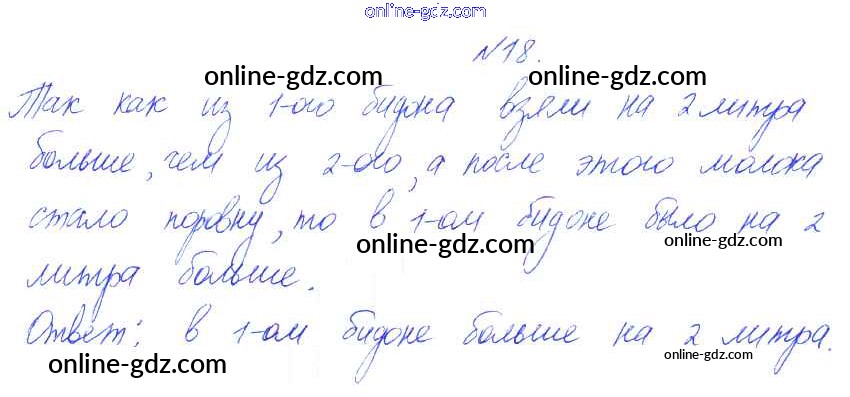 online-gdz.com
№18.
online-gdz.com
online-gdz.com
Так как из 1-ого бидона взяли на 2 литра
больше, чем из 2-ого, а после этого молока
online-gdz.com
стало поровну, то в 1-ом бидоне было на 2
online-gdz.com
online-gdz.com
литра больше.
Ответ: в 1-ом бидоне больше на 2 литра.
online-gdz.com
online-gdz.com